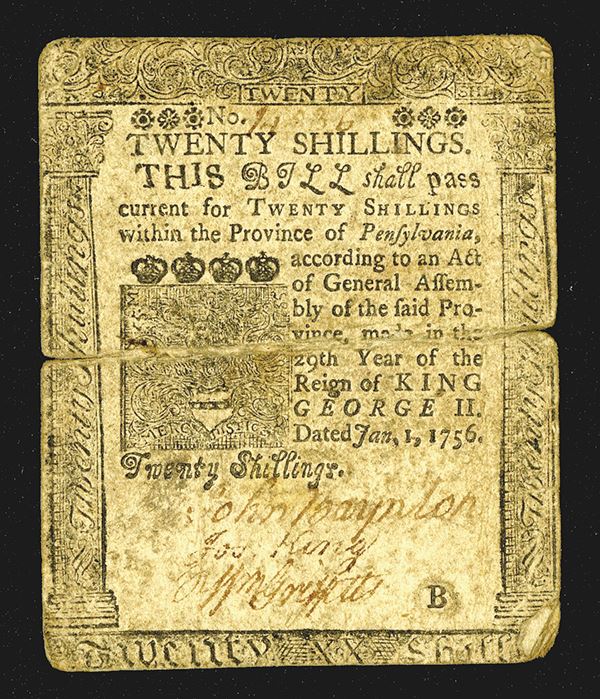 TWENTY
No.
TWENTY SHILLINGS.
THIS BILL shall pass
current for TWENTY SHILLINGS
within the Province of Penſylvania,
according to an Act
of General Aſſem-
bly of the ſaid Pro-
vince, made in the
29th Year of the
Reign of KING
GEORGE II.
Dated Jan, 1, 1756.
Twenty Shillings.
John Baynton
Jos. King
B
Twenty Shillings
Twenty Shillings
Twenty XX Shill